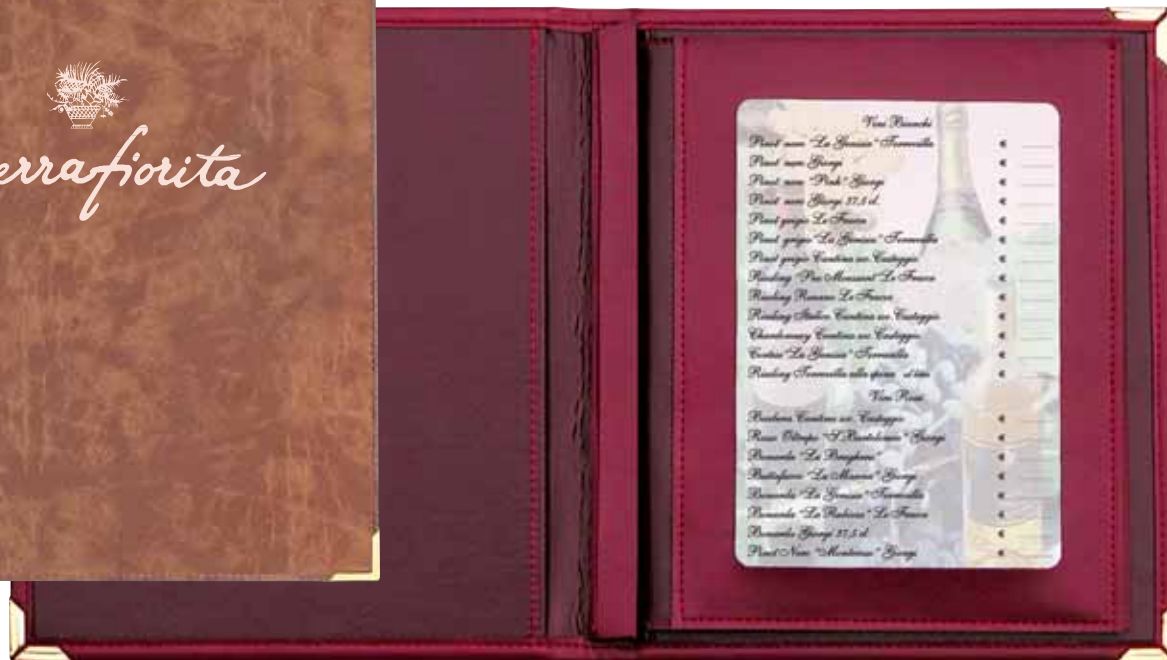 errafiorita
Vini Bianchi
Pinot nero "La Genisia" Torrevilla €
Pinot nero Giorgi €
Pinot nero "Pink" Giorgi €
Pinot nero Giorgi 37,5 cl. €
Pinot grigio Le Fracce €
Pinot grigio "La Genisia" Torrevilla €
Pinot grigio Cantina Casteggio €
Riesling Le Fracce €
Riesling Renano Le Fracce €
Riesling Italico Cantina Casteggio €
Chardonnay Cantina Casteggio €
Cortese "La Genisia" Torrevilla €
Riesling Torrevilla alla spina €
Vini Rossi
Barbera Cantina Casteggio €
Rosso Oltrepo Giorgi €
Bonarda "La Brughera" €
Buttafuoco "La Manna" Giorgi €
Bonarda "La Genisia" Torrevilla €
Bonarda "La Rubiosa" Le Fracce €
Bonarda Giorgi 37,5 cl €
Pinot Nero "Monteroso" Giorgi €